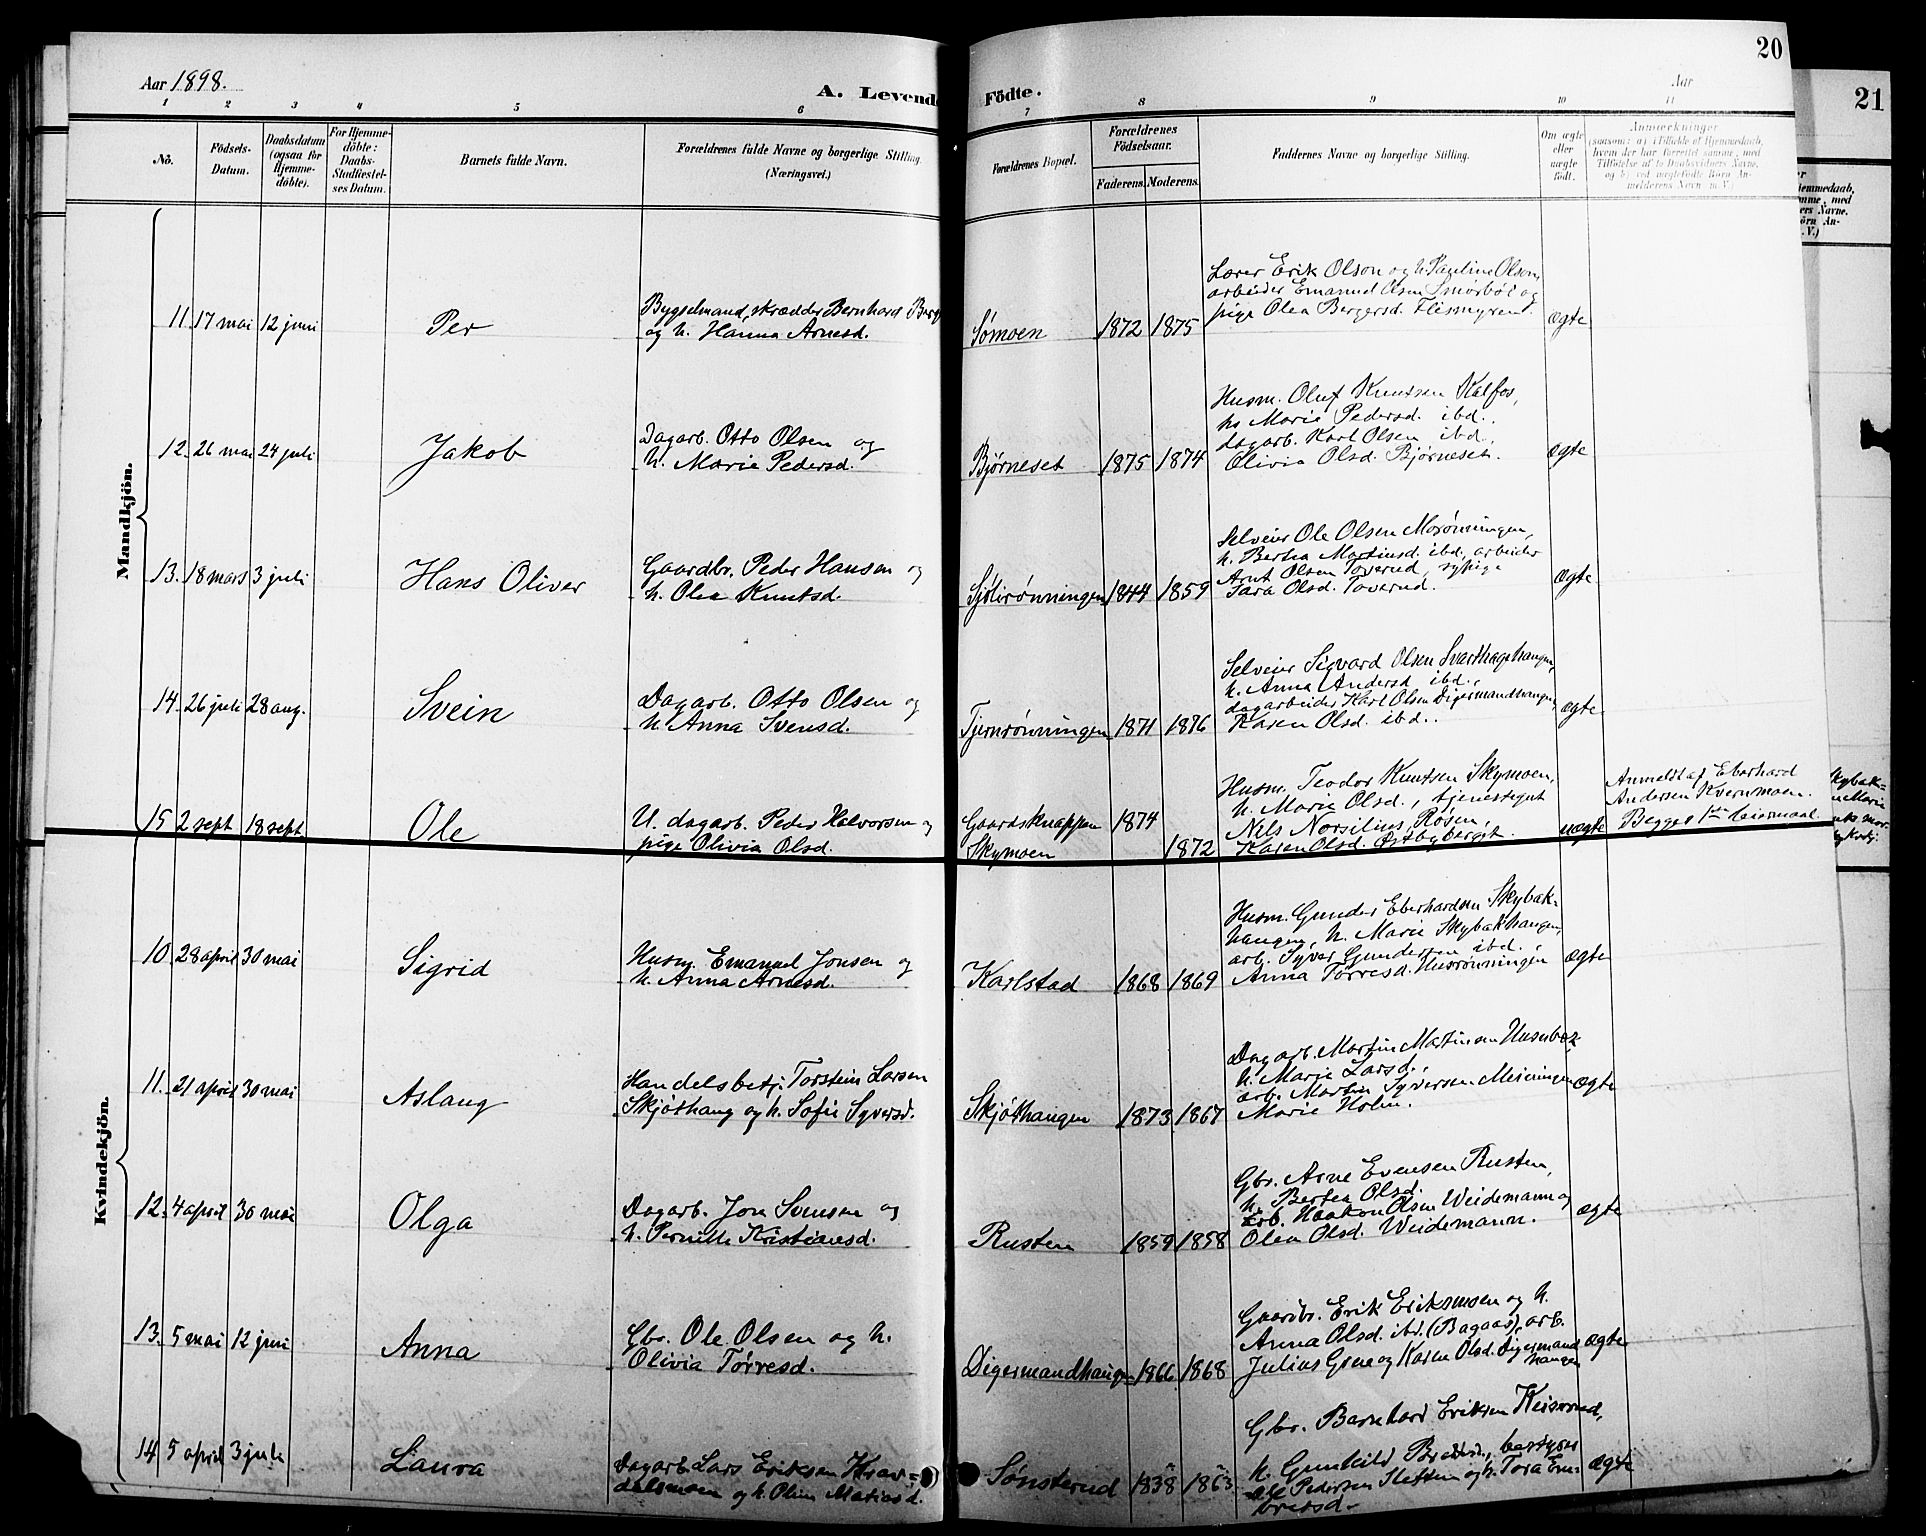 Aar 1898.
A. Levende
Födte.
20
Aar
21
1 2 3 4 5 6 7 8 9 10 11
No.
Födsels-
Datum.
Daabsdatum
(ogsaa for
Hjemme-
döbte).
For Hjemme-
döbte:
Daabs-
Stadfæstel-
ses Datum.
Barnets fulde Navn.
Forældrenes fulde Navne og borgerlige Stilling.
(Næringsvei.)
Forældrenes Bopæl.
Forældrenes
Födselsaar.
Faderens. Moderens.
Faddernes Navne og borgerlige Stilling.
Om ægte
eller
uægte
födt.
Anmærkninger
(saasom: a) i Tilfælde af Hjemmedaab,
hvem der har forrettet samme, med
Tilföielse af to Daabsvidners Navne,
og b) ved uægtefödte Börn An-
melderens Navn m. V.)
Mandkjön.
11. 17 mai 12 juni
Per
Bygselmand, skrædder Bernhard Berg
og h. Hanna Arnesd.
Sømoen 1872 1875
Lærer Erik Olson og h. Pauline Olson,
arbeider Emanuel Olsen Smørbøl og
pige Olea Bergersd. Flismyren.
ægte
12. 26 mai 24 juli
Jakob
Dagarb. Otto Olsen og
h. Marie Pedersd.
Bjørneset 1875 1874
Husm. Oluf Knutsen Kalfos,
hs Marie Pedersd. ibd.
dagarb. Karl Olsen ibd.,
Olivia Olsd. Bjørneset.
ægte
13. 18 mars 3 juli
Hans Oliver
Gaardbr. Peder Hansen og
h. Olea Knutsd.
Sjølirønningen 1844 1859
Selveier Ole Olsen Morønningen,
h. Bertea Martinsd. ibd., arbeider
Arnt Olsen Toverud, sypige
Tara Olsd. Toverud.
ægte
14. 26 juli 28 aug.
Svein
Dagarb. Otto Olsen og
h. Anna Svensd.
Tjernrønningen 1871 1876
Selveier Sigvard Olsen Svarthagehaugen,
h. Anna Andersd ibd.,
dagarbeider Karl Olsen Digermandhaugen,
Karen Olsd. ibd..
ægte
15 2 sept 18 sept
Ole
U. dagarb. Peder Halvorsen og
pige Olivia Olsd.
Gaardsknappen 1874
Skymoen 1872
Husm. Teodor Knutsen Skymoen,
h. Marie Olsd., tjenestegut
Nils Norsilius Røsen,
Karen Olsd. Østbyberget.
uægte
Anmeldt af Eberhard
Andersen Kvernmoen.
Begges 1ste leiermaal.
Kvindekjön.
10. 28 april 30 mai
Sigrid
Husm. Emanuel Jonsen og
h. Anna Arnesd.
Karlstad 1868 1869
Husm. Gunder Eberhardsen Skybak-
haugen, h. Marie Skybakhaugen,
arb. Syver Gundersen ibd.
Anna Tørresd. Husrønningen
ægte
11. 21 april 30 mai
Aslaug
Handelsbetj. Torstein Larsen
Skjøthaug og h. Sofie Syversd.
Skjøthaugen 1873 1867
Dagarb. Martin Martinsen
h. Marie Larsd.,
arb. Martin Syversen Meieningen
Marie Holm.
ægte
12. 4 april 30 mai
Olga
Dagarb. Jon Svensen og
h. Pernille Kristiansd.
Rusten 1859 1858
Gbr. Arne Evensen Rusten,
h. Bertea Olsd.
Arb. Haakon Olsen Weidemann og
Olea Olsd. Weidemann.
ægte
13. 5 mai 12 juni
Anna
Gbr. Ole Olsen og h.
Olivia Tørresd.
Digermandhaugen 1866 1868
Gaardbr. Erik Eriksen og h.
Anna Olsd. ibd. (Bagaas), arb.
Julius Grue og Karen Olsd. Digermand
haugen
ægte
14 5 april 3 juli
Laura
Dagarb. Lars Eriksen
og h. Oline Matiasd.
Sønsterud 1838 1863
Gbr. Bernhard Eriksen Keiserud,
h. Gunhild
Pedersen Sletten og h. Tora Em-
bretsd.
ægte